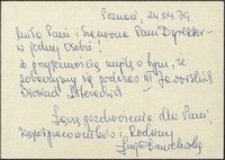 Poznań, 24.04.79.
Miła Pani i Szanowna Pani Dyrektor -
w jednej osobie!
Z przyjemnością myślę o tym, że
zobaczymy się podczas III Jaworskich
Biesiad Literackich.
Łączę pozdrowienia dla Pani,
Współpracowników i Rodziny